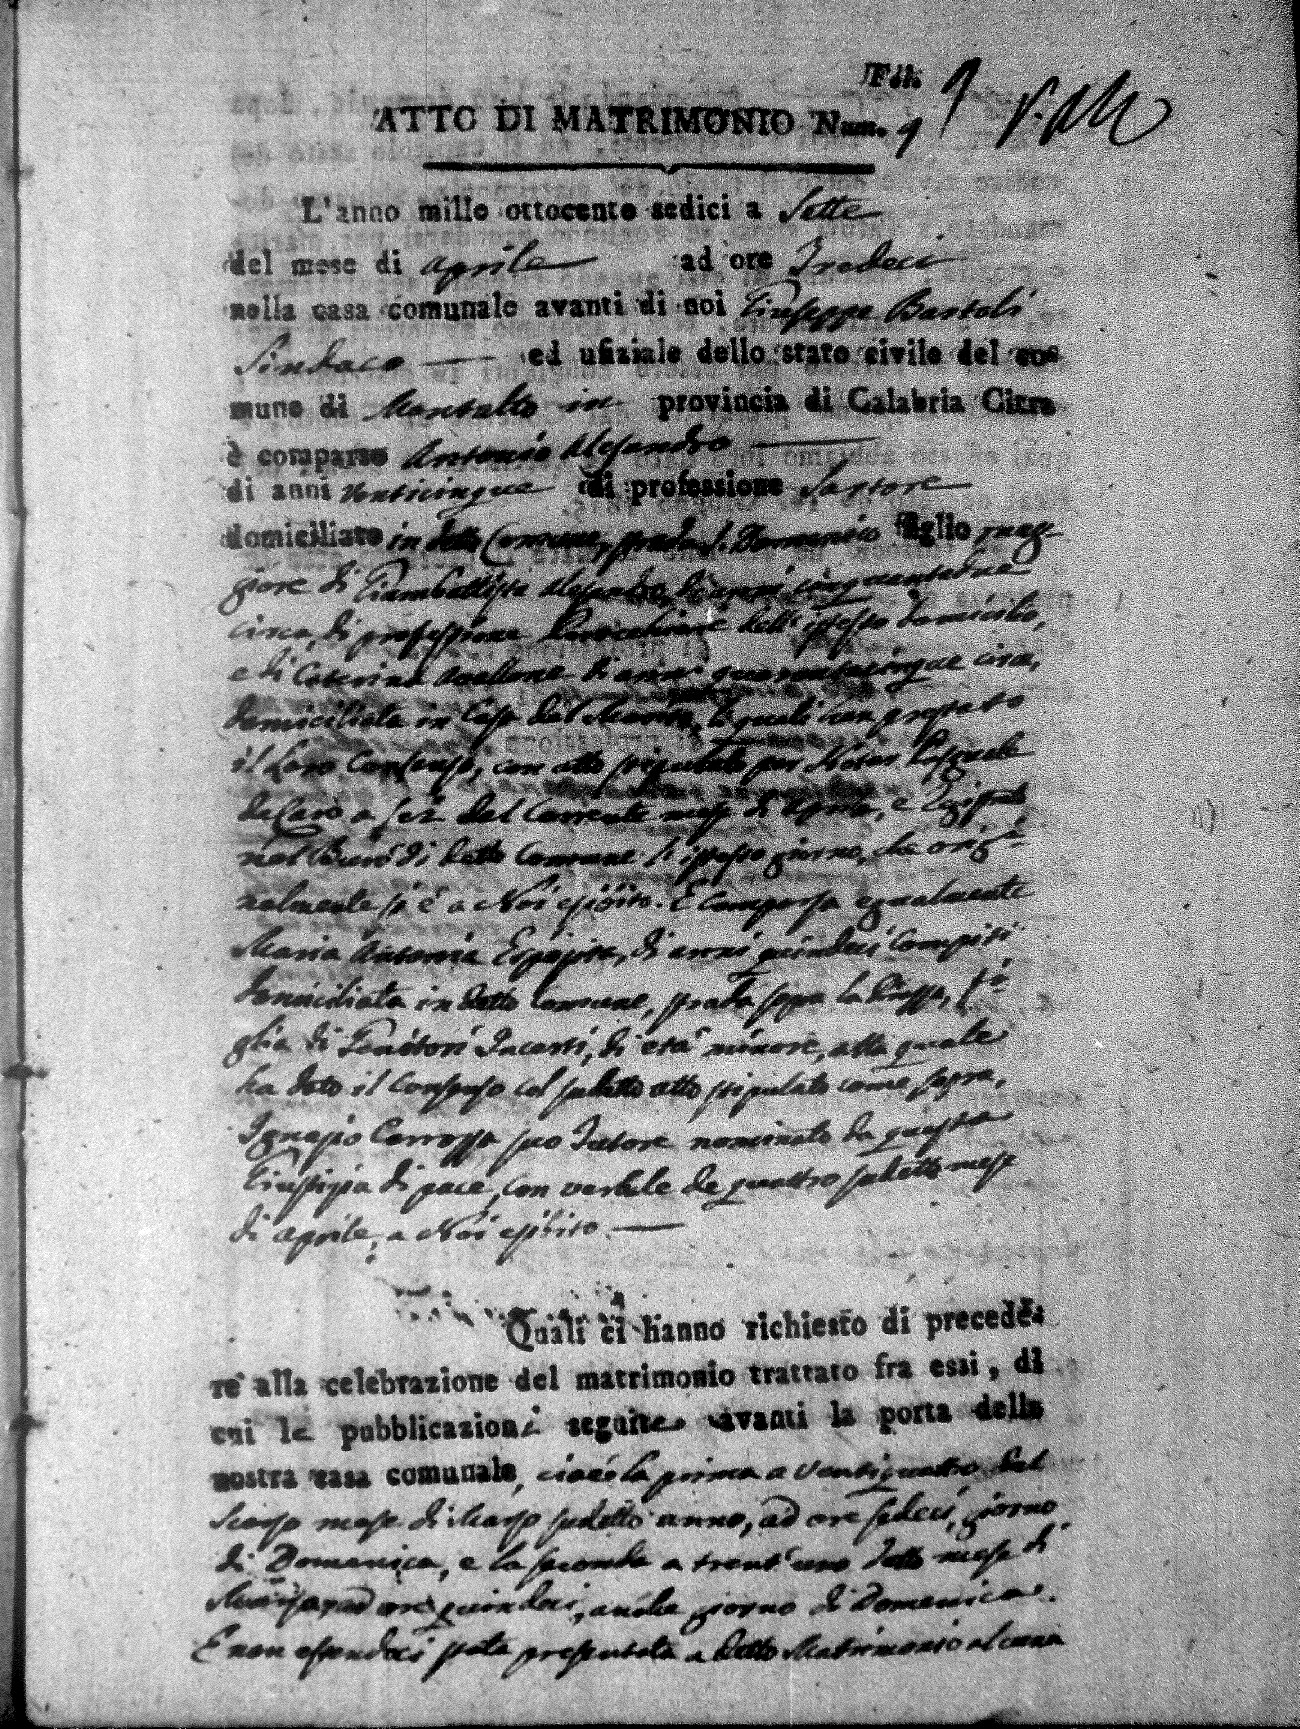 Fol. 9
ATTO DI MATRIMONIO Num. 9
L'anno mille ottocento sedici a Sette
del mese di aprile ad ore Tredeci
nella casa comunale avanti di noi Giuseppe Bartoli
Sindaco ed ufiziale dello stato civile del co=
mune di Montalto in provincia di Calabria Citra
è comparso Antonio Alesandro
di anni venticinque di professione Sartore
domiciliato in detto Comune, strada S. Domenico figlio mag=
giore di Giambattista Alesandro, di anni cinquantadue
circa, di professione dell' istesso domicilio,
e di Caterina di anni quarantacinque circa,
domiciliata in Casa del Marito, li quali han prestato
il loro Consenso, con atto stipulato per Notar Pasquale
de Caro a sei del Corrente mese di Aprile, e
nel di detto Comune l'istesso giorno, che origi=
nalmente si è a Noi esibito. È Comparsa egualmente
Maria Antonia di anni quindeci Compiti
domiciliata in detto Comune, strada sopra la Piazza, fi=
glia di Genitori Incerti, di età minore, alla quale
ha dato il Consenso col sudetto atto stipulato come sopra,
Ignazio Carrozza suo Tutore nominato da questa
Giustizia di pace, con verbale de quattro sudetto mese
di aprile, a Noi esibito.
Quali ci hanno richiesto di precede=
re alla celebrazione del matrimonio trattato fra essi, di
cui le pubblicazioni seguite avanti la porta della
nostra casa comunale, cioè la prima a ventiquattro del
Scorso mese di Marzo sudetto anno, ad ore sedeci, giorno
di Domenica, e la seconda a trent'uno detto mese di
Marzo, ad ore quindeci, anche giorno di Domenica.
E non essendoci stata presentata a detto Matrimonio alcuna